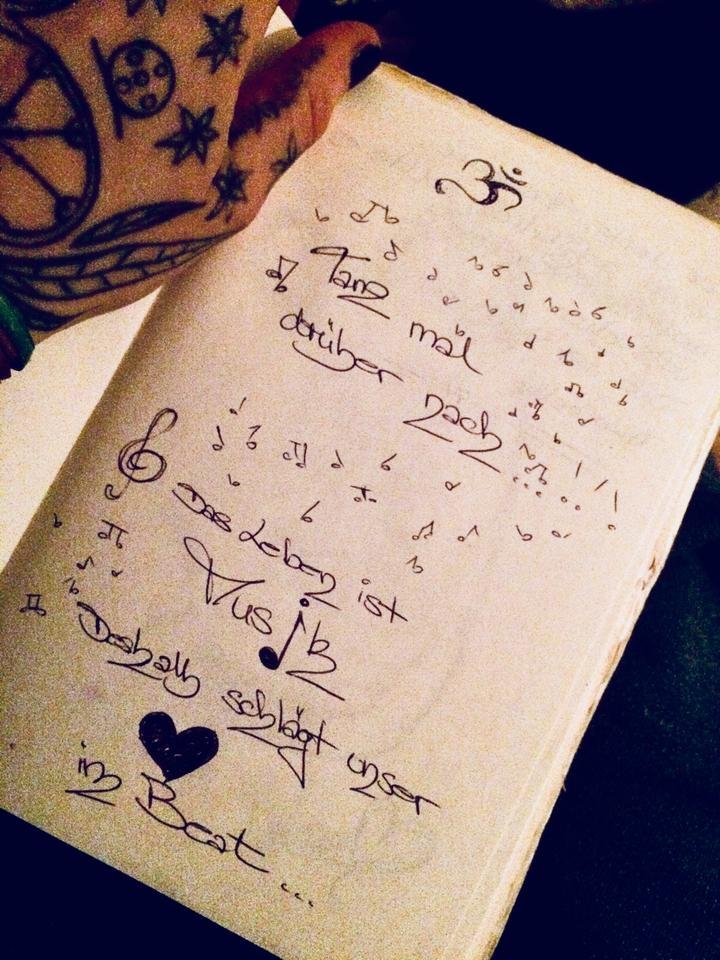 ॐ
Tanz mal
darüber nach...
Das Leben ist
Musik
Deshalb schlägt unser
♥
im Beat...